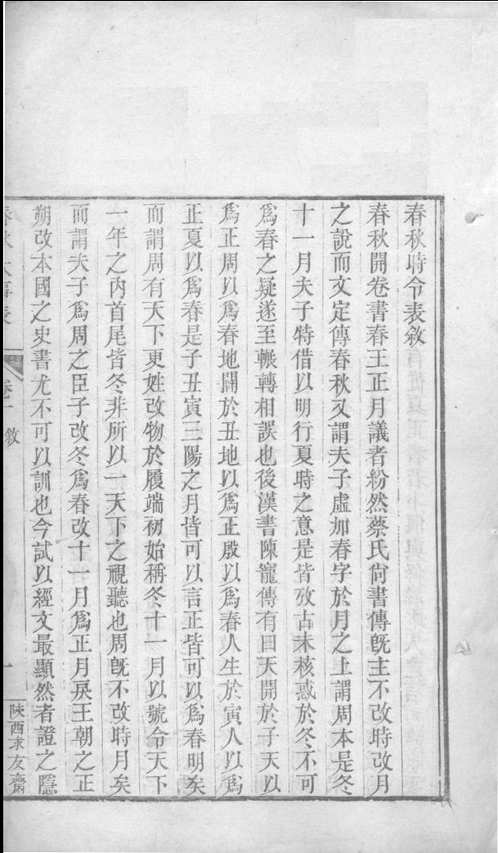 春秋時令表敘
春秋開卷書春王正月議者紛然蔡氏尙書傳旣主不改時改月
之說而文定傳春秋又謂夫子虛加春字於月之上謂周本是冬
十一月夫子特借以明行夏時之意是皆攷古未核惑於冬不可
爲春之疑遂至輾轉相誤也後漢書陳寵傳有曰天開於子天以
爲正周以爲春地闢於丑地以爲正殷以爲春人生於寅人以爲
正夏以爲春是子丑寅三陽之月皆可以言正皆可以爲春明矣
而謂周有天下更姓改物於履端初始稱冬十一月以號令天下
一年之內首尾皆冬非所以一天下之視聽也周旣不改時月矣
而謂夫子爲周之臣子改冬爲春改十一月爲正月戾王朝之正
朔改本國之史書尤不可以訓也今試以經文最顯然者證之隱
春秋大事表 卷一敘 一 陝西求友齋